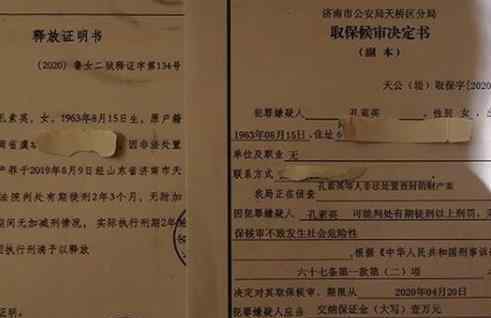 释放证明书
（2020）鲁女二狱释证字第134号
孔索英，女，1963年8月15日生，原户籍
南省虞
因非法处置
产罪于2019年8月9日经山东省济南市天
法院判处有期徒刑2年3个月，无附加
期间无加减刑情况，实际执行刑期2年
执行刑满予以释放
证明。
济南市公安局天桥区分局
取保候审决定书
（副本）
天公（缇）取保字〔2020
犯罪嫌疑人 孔素英 性别 女，出
1963年08月15日，住址 6
单位及职业 无
联系方式
我局正在侦查 孔素英等人非法处置查封的财产案
因犯罪嫌疑人 孔素英 可能判处有期徒刑以上刑罚，采
保候审不致发生社会危险性
，根据《中华人民共和国刑事诉讼
六十七条第一款第（二）项
决定对其取保候审，期限从 2020年04月20日
犯罪嫌疑人应当 交纳保证金（大写）壹万元